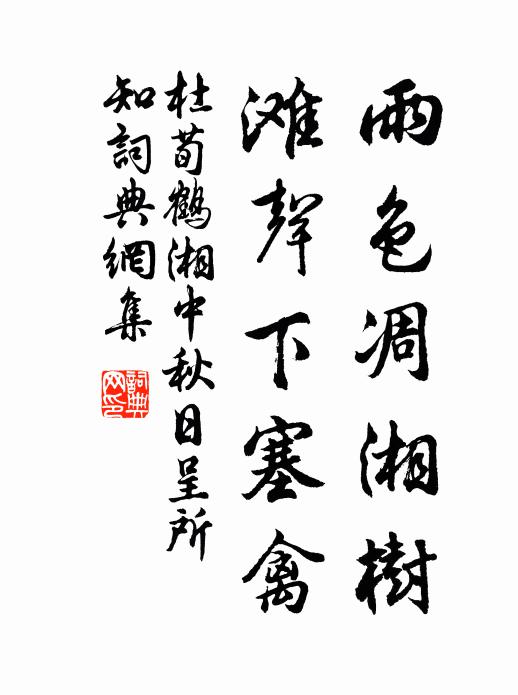 雨色凋湘樹
滩聲下塞禽
杜荀鶴湘中秋日呈所
知詞典網集
詞典
网印